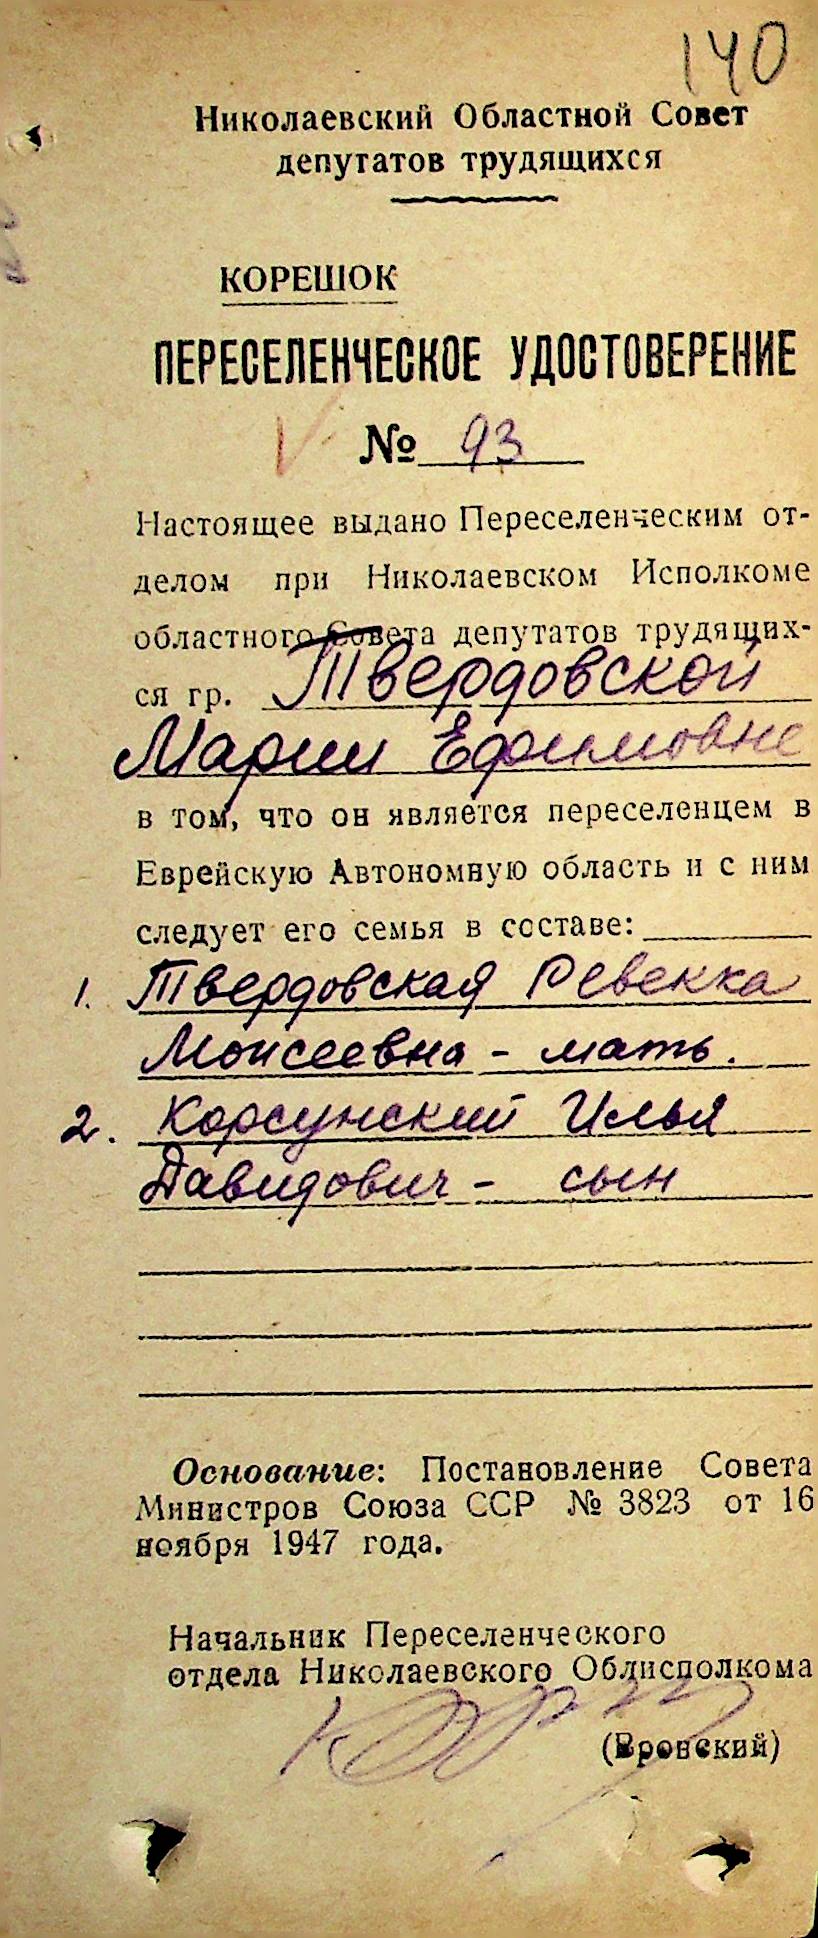 140
Николаевский Областной Совет
депутатов трудящихся
КОРЕШОК
ПЕРЕСЕЛЕНЧЕСКОЕ УДОСТОВЕРЕНИЕ
№ 93
Настоящее выдано Переселенческим от-
делом при Николаевском Исполкоме
областного Совета депутатов трудящих-
ся гр. Твердовской
Марии Ефимовне
в том, что он является переселенцем в
Еврейскую Автономную область и с ним
следует его семья в составе:
1. Твердовская Ревекка
Моисеевна - мать.
2. Корсунский Илья
Давидович - сын
Основание: Постановление Совета
Министров Союза ССР № 3823 от 16
ноября 1947 года.
Начальник Переселенческого
отдела Николаевского Облисполкома